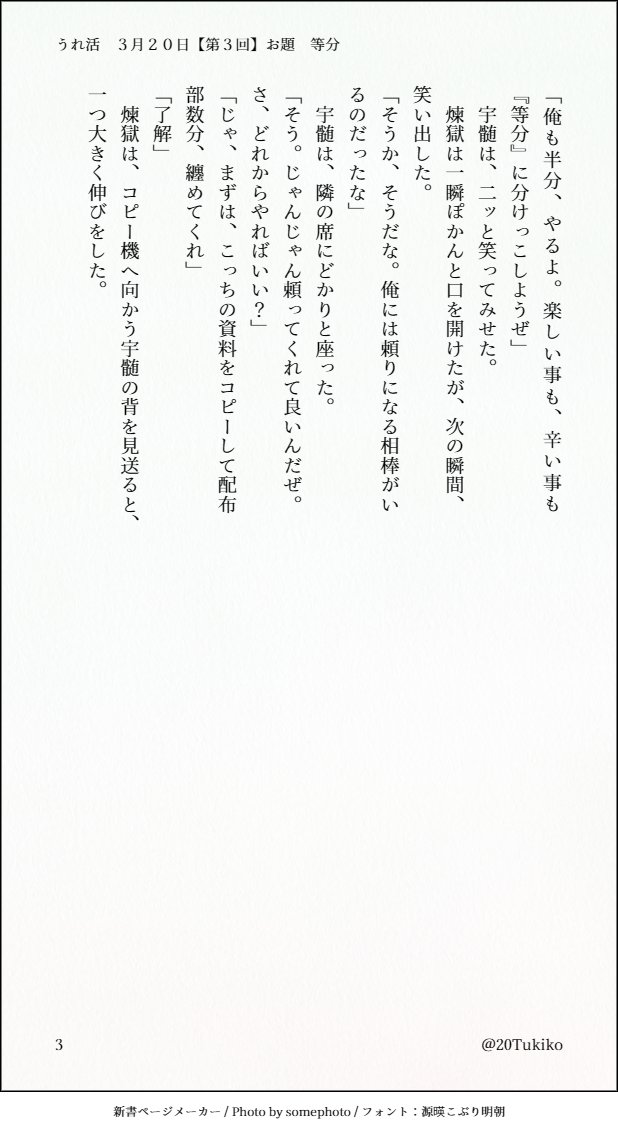 うれ活　３月２０日【第３回】お題　等分
「俺も半分、やるよ。楽しい事も、辛い事も
『等分』に分けっこしようぜ」
　宇髄は、ニッと笑ってみせた。
　煉獄は一瞬ぽかんと口を開けたが、次の瞬間、
笑い出した。
「そうか、そうだな。俺には頼りになる相棒がい
るのだったな」
　宇髄は、隣の席にどかりと座った。
「そう。じゃんじゃん頼ってくれて良いんだぜ。
さ、どれからやればいい？」
「じゃ、まずは、こっちの資料をコピーして配布
部数分、纏めてくれ」
「了解」
　煉獄は、コピー機へ向かう宇髄の背を見送ると、
一つ大きく伸びをした。
3
@20Tukiko
新書ページメーカー / Photo by somephoto / フォント：源暎こぶり明朝